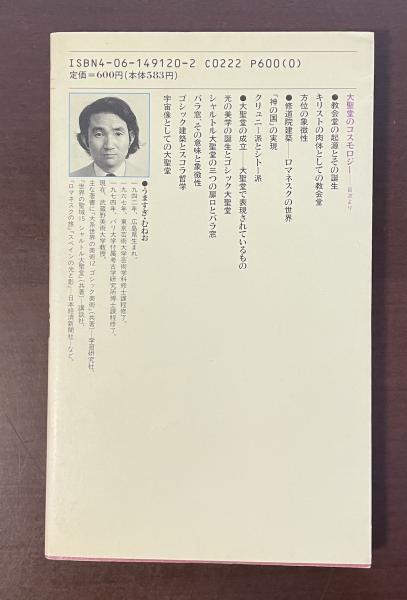 ISBN4-06-149120-2 C0222 P600(0)
定価=600円(本体583円)
大聖堂のコスモロジー──目次より
●教会堂の起源とその誕生
キリストの肉体としての教会堂
方位の象徴性
●修道院建築──ロマネスクの世界
「神の国」の実現
クリュニー派とシトー派
●大聖堂の成立──大聖堂で表現されているもの
光の美学の誕生とゴシック大聖堂
シャルトル大聖堂の三つの扉口とバラ窓
バラ窓、その意味と象徴性
ゴシック建築とスコラ哲学
宇宙像としての大聖堂
●うますぎ・むねお
一九四二年、広島県生まれ。
一九六七年、東京芸術大学芸術学科修士課程修了。
一九七四年、パリ大学付属考古学研究所博士課程修了。
現在、武蔵野美術大学教授。
主な著書に「大系世界の美術12 ゴシック美術」(共著)──学習研究社、
「世界の聖域15 シャルトル大聖堂」(共著)──講談社、
「ロマネスクの旅」「スペインの光と影」──日本経済新聞社──など。